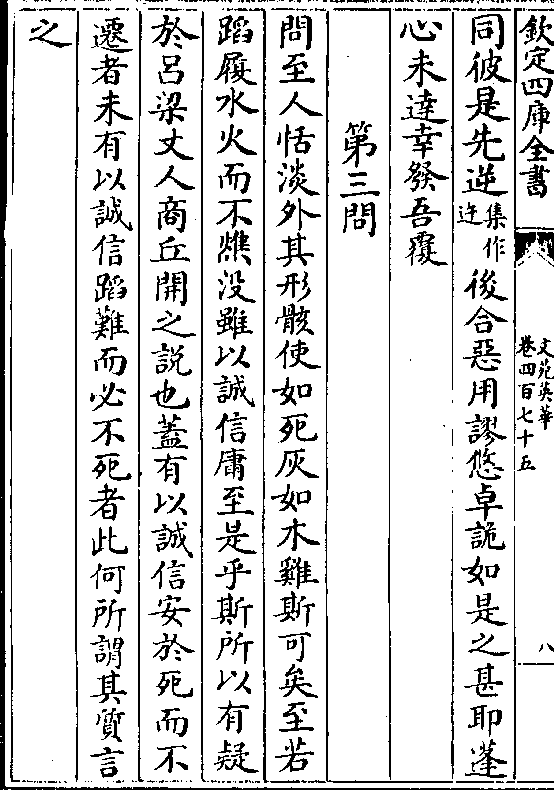 欽定四庫全書
文苑英華
卷四百七十五
八
同彼是先逆集作迕後合惡用謬悠卓詭如是之甚耶蓬
心未達幸發吾覆
第三問
問至人恬淡外其形骸使如死灰如木雞斯可矣至若
蹈履水火而不燋沒雖以誠信庸至是乎斯所以有疑
於呂梁丈人商丘開之說也蓋有以誠信安於死而不
遷者未有以誠信蹈難而必不死者此何所謂其質言
之